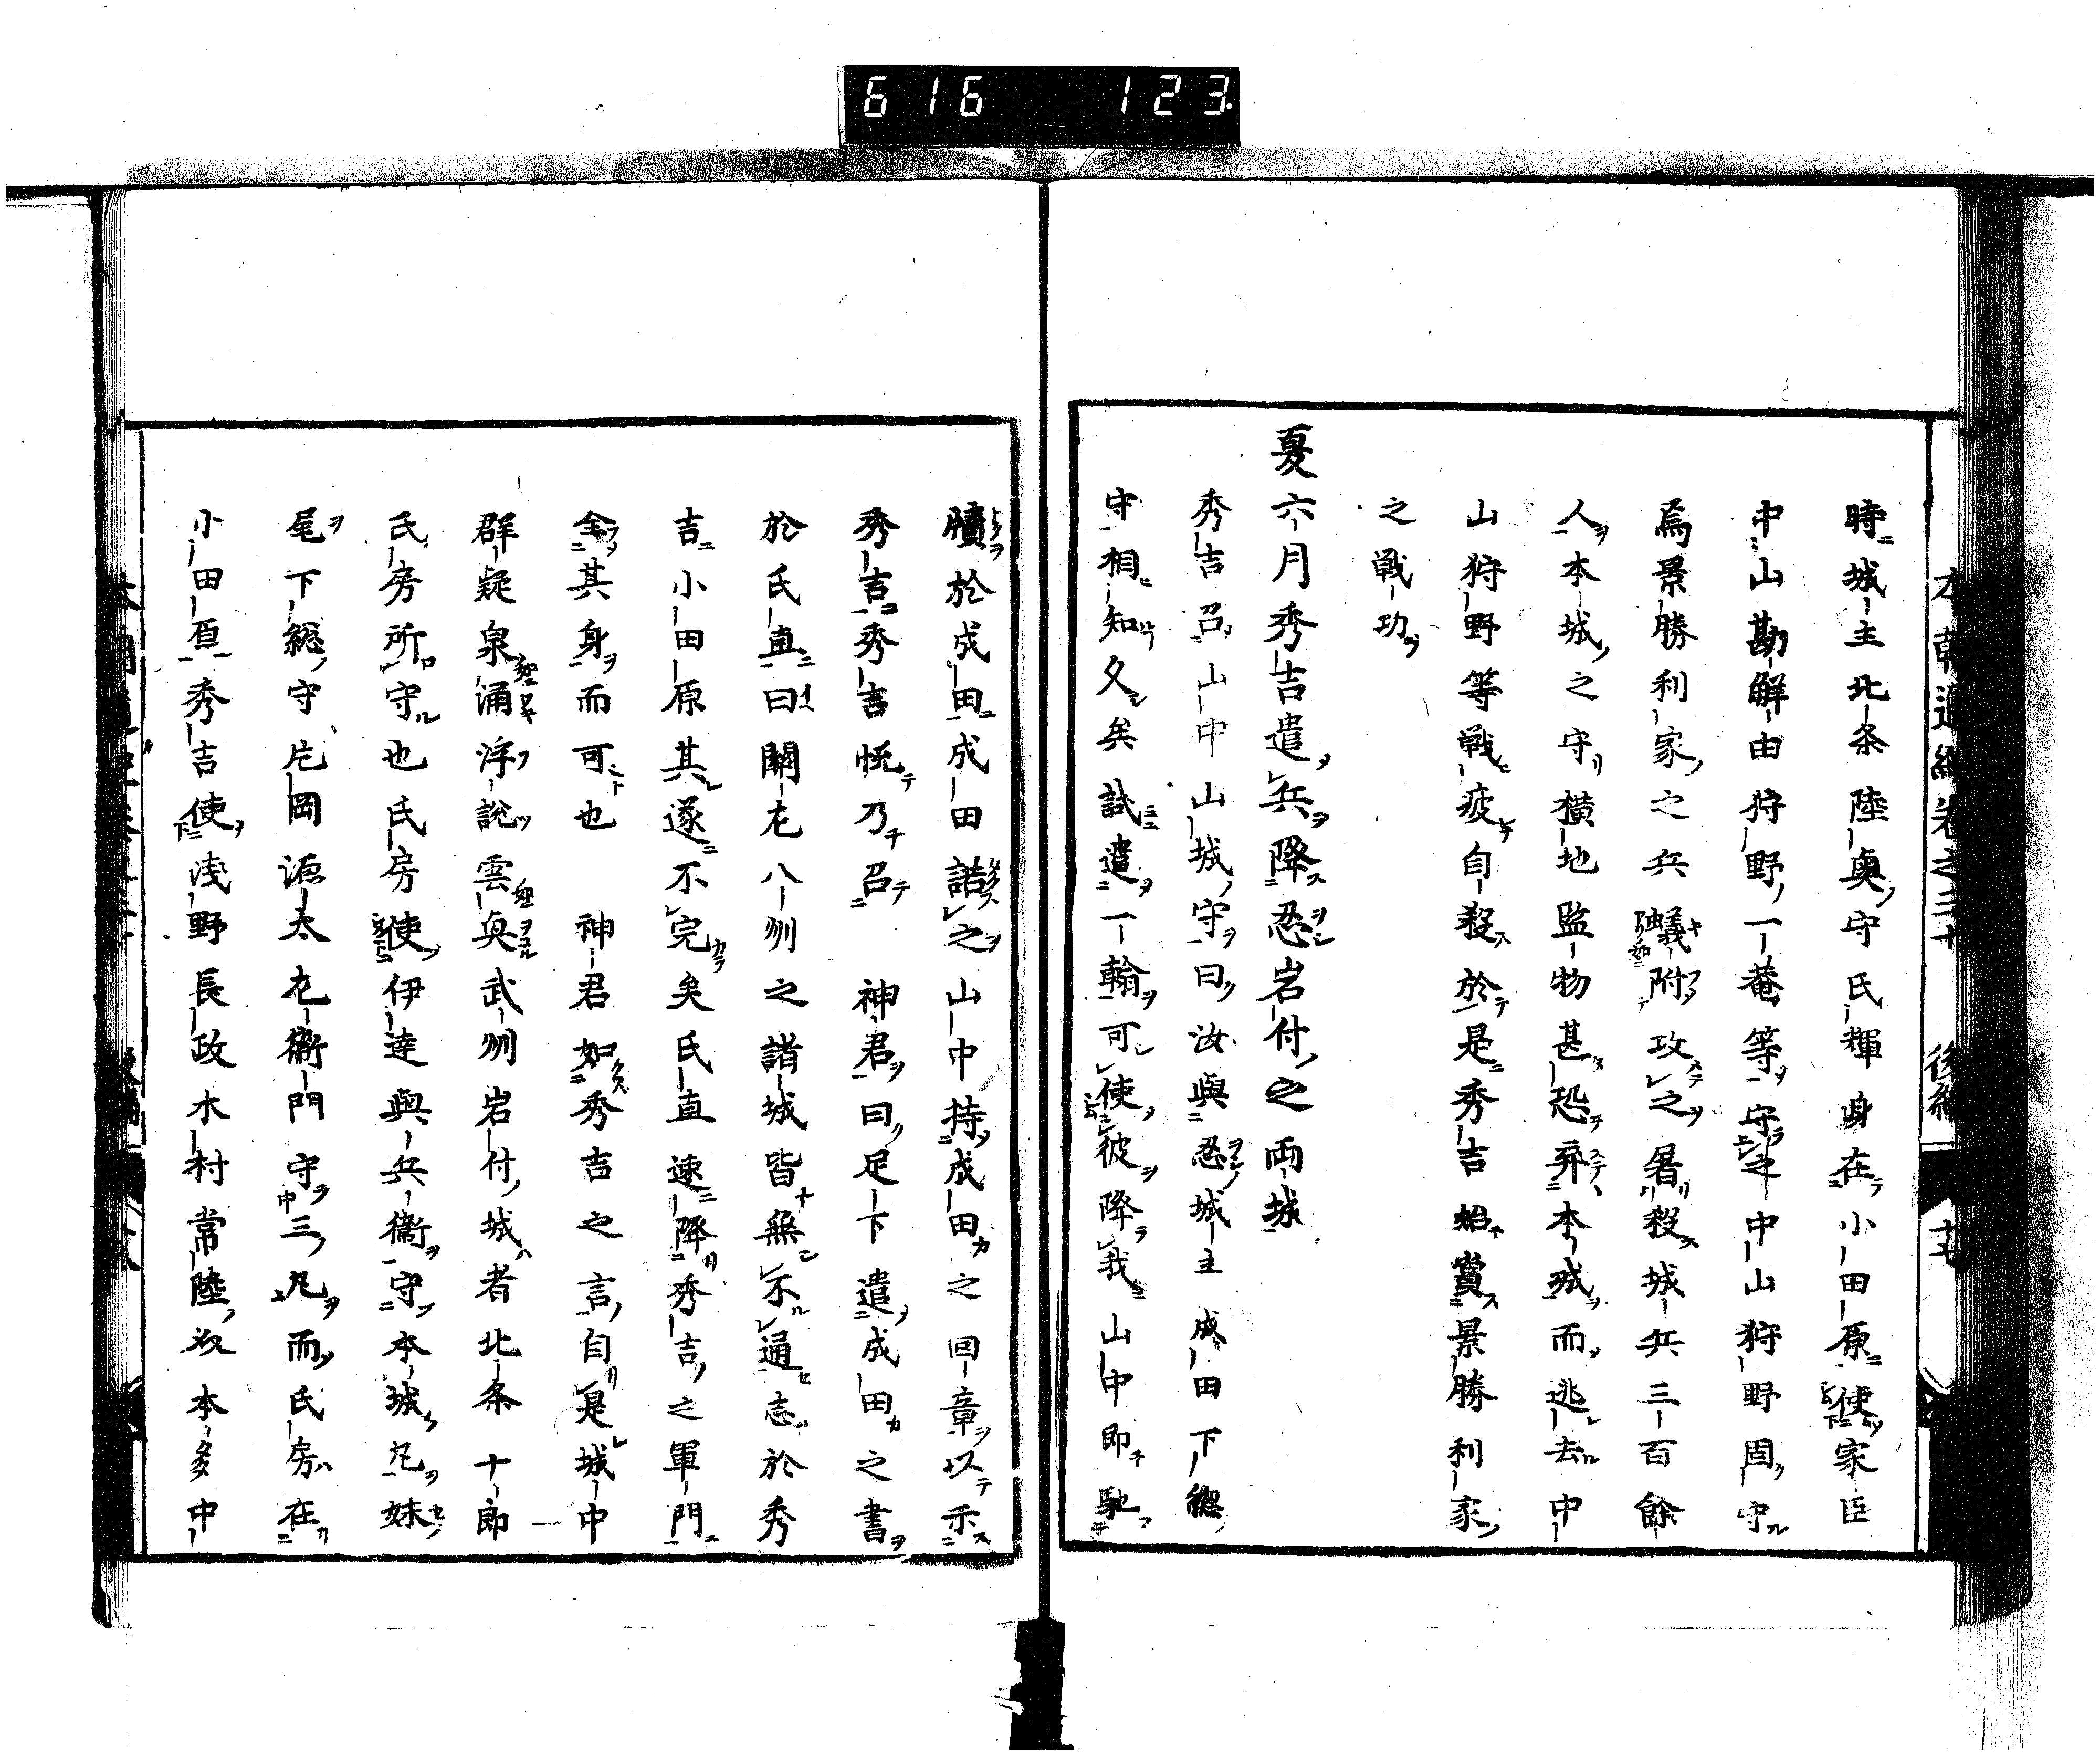 616 123
時城主北条陸奥守氏輝身在小田原使家臣
中山勘解由狩野一菴等守之中山狩野固守
焉景勝利家之兵蟻附攻之暑殺城兵三百餘
人本城之守横地監物甚恐弃本城而逃去中
山狩野等戦疲自殺於是秀吉始賞景勝利家
之戦功
夏六月秀吉遣兵降忍岩付之両城
秀吉召山中山城守曰汝與忍城主成田下総
守相知久矣試遣一翰可使彼降我山中即馳
牘於成田成田諾之山中持成田之回章以示
秀吉秀吉悦乃召 神君曰足下遣成田之書
於氏直曰關左八州之諸城皆無不通志於秀
吉小田原其遂不完矣氏直速降秀吉之軍門
全其身而可也 神君如秀吉之言自是城中
群疑泉涌浮説雲興武州岩付城者北条十郎
氏房所守也氏房使伊達與兵衞守本城九妹
尾下総守片岡源太左衞門守三九而氏房在
小田原秀吉使浅野長政木村常陸 本多中